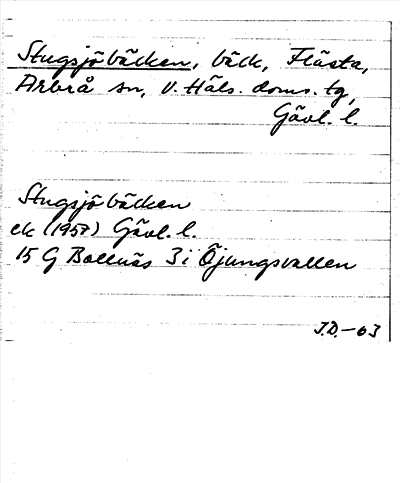 Stugsjöbäcken, bäck, Flästa,
Arbrå sn, V. Häls. doms. tg,
Gävl. l.
Stugsjöbäcken
ek (1957) Gävl. l.
15 G Bollnäs 3 i Öjungsvallen
J.D.-63